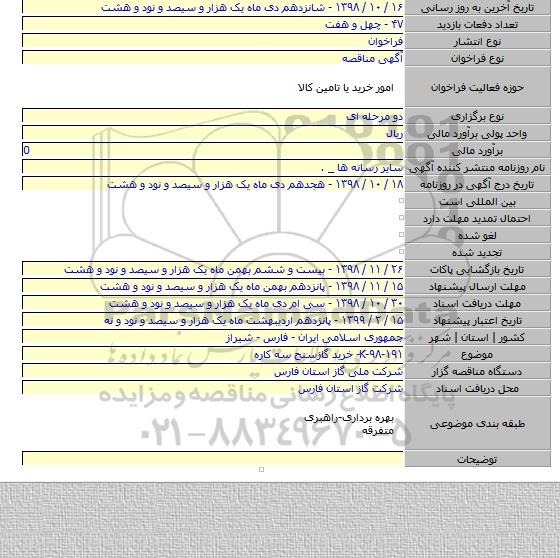 تاریخ آخرین به روز رسانی ۱۶ / ۱۰ / ۱۳۹۸ - شانزدهم دی ماه یک هزار و سیصد و نود و هشت
تعداد دفعات بازدید ۴۷ - چهل و هفت
نوع انتشار فراخوان
نوع فراخوان آگهی مناقصه
حوزه فعالیت فراخوان امور خرید یا تامین کالا
نوع برگزاری دو مرحله ای
واحد پولی برآورد مالی ریال
برآورد مالی 0
نام روزنامه منتشر کننده آگهی سایر رسانه ها _ .
تاریخ درج آگهی در روزنامه ۱۸ / ۱۰ / ۱۳۹۸ - هجدهم دی ماه یک هزار و سیصد و نود و هشت
بین المللی است
احتمال تمدید مهلت دارد
لغو شده
تجدید شده
تاریخ بازگشایی پاکات ۲۶ / ۱۱ / ۱۳۹۸ - بیست و ششم بهمن ماه یک هزار و سیصد و نود و هشت
مهلت ارسال پیشنهاد ۱۵ / ۱۱ / ۱۳۹۸ - پانزدهم بهمن ماه یک هزار و سیصد و نود و هشت
مهلت دریافت اسناد ۳۰ / ۱۰ / ۱۳۹۸ - سی ام دی ماه یک هزار و سیصد و نود و هشت
تاریخ اعتبار پیشنهاد ۱۵ / ۲ / ۱۳۹۹ - پانزدهم اردیبهشت ماه یک هزار و سیصد و نود و نه
کشور | استان | شهر جمهوری اسلامی ایران - فارس - شیراز
موضوع K-۹۸-۱۹۱- خرید گازسنج سه کاره
دستگاه مناقصه گزار شرکت ملی گاز استان فارس
محل دریافت اسناد شرکت گاز استان فارس
پایگاه اطلاع رسانی مناقصه و مزایده
طبقه بندی موضوعی بهره برداری-راهبری
متفرقه
۰۲۱-۸۸۳۴۹۶۷۰-۵
توضیحات